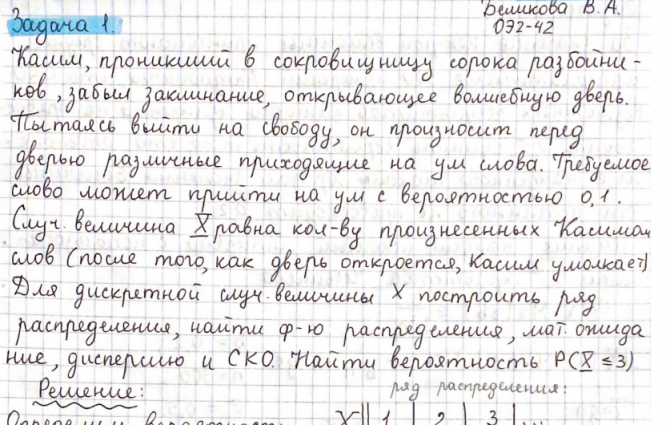 Беликова В. А.
ОЭ2-42
Задача 1.
Касим, проникший в сокровищницу сорока разбойни-
ков, забыл заклинание, открывающее волшебную дверь.
Пытаясь выйти на свободу, он произносит перед
дверью различные приходящие на ум слова. Требуемое
слово может прийти на ум с вероятностью 0,1.
Случ. величина X равна кол-ву произнесенных Касимом
слов (после того, как дверь откроется, Касим умолкает)
Для дискретной случ. величины X построить ряд
распределения, найти ф-ю распределения, мат. ожида
ние, дисперсию и СКО. Найти вероятность P(X ≤ 3)
Решение:
ряд распределения:
X 1 2 3 ...